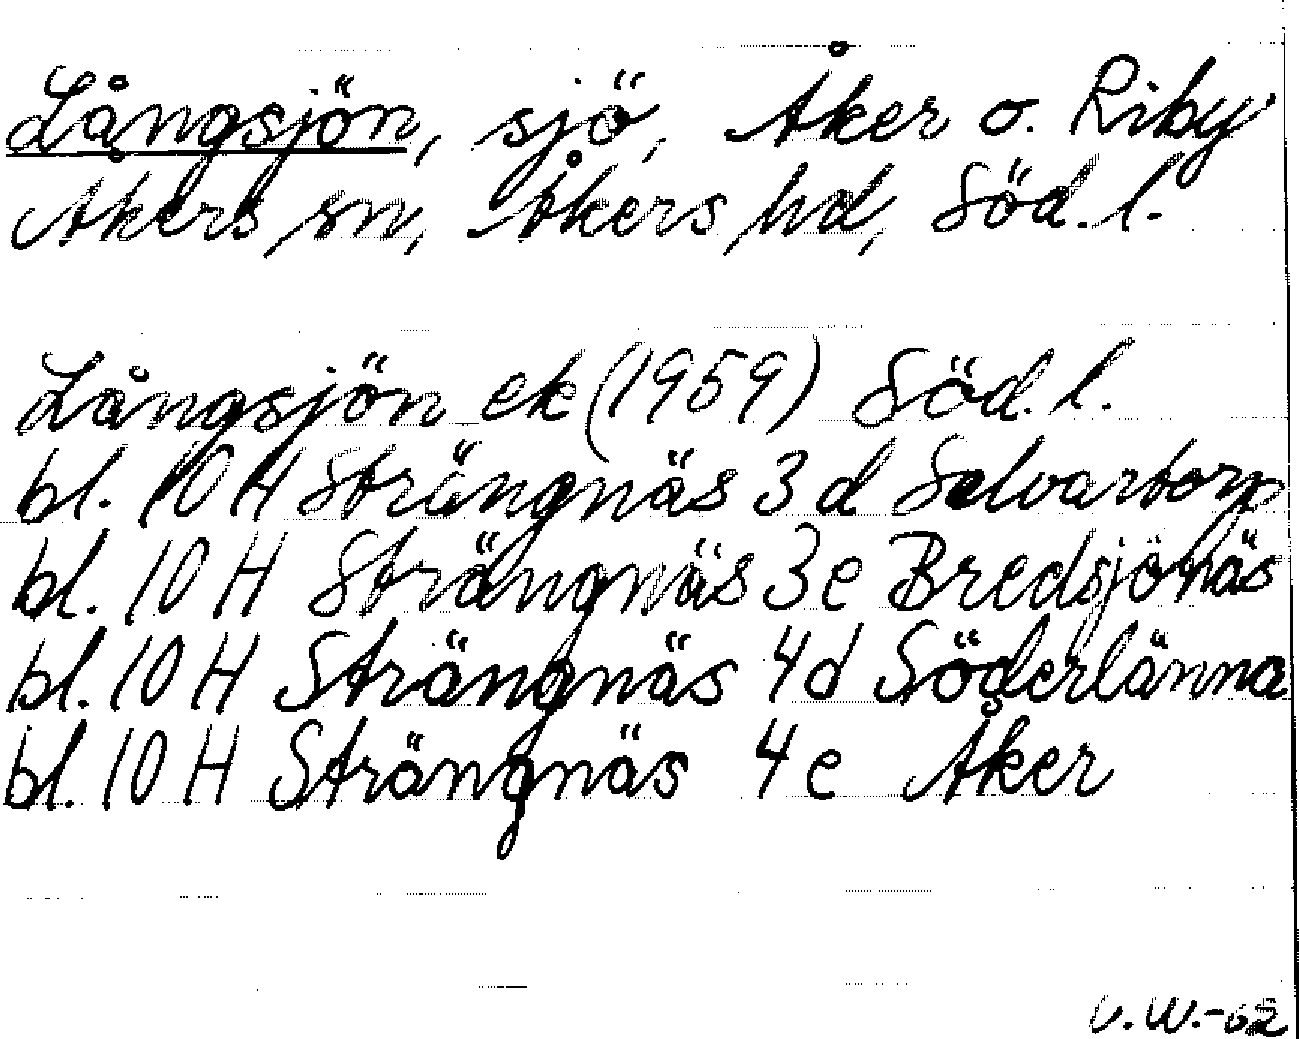 Långsjön, sjö, Åker o. Riby
Åkers sn, Åkers hd, Söd. l.
Långsjön ek (1959) Söd. l.
bl. 10 H Strängnäs 3 d Selvartorp
bl. 10 H Strängnäs 3 e Bredsjönäs
bl. 10 H Strängnäs 4 d Söderlänna
bl. 10 H Strängnäs 4 e Åker
V. W.-62